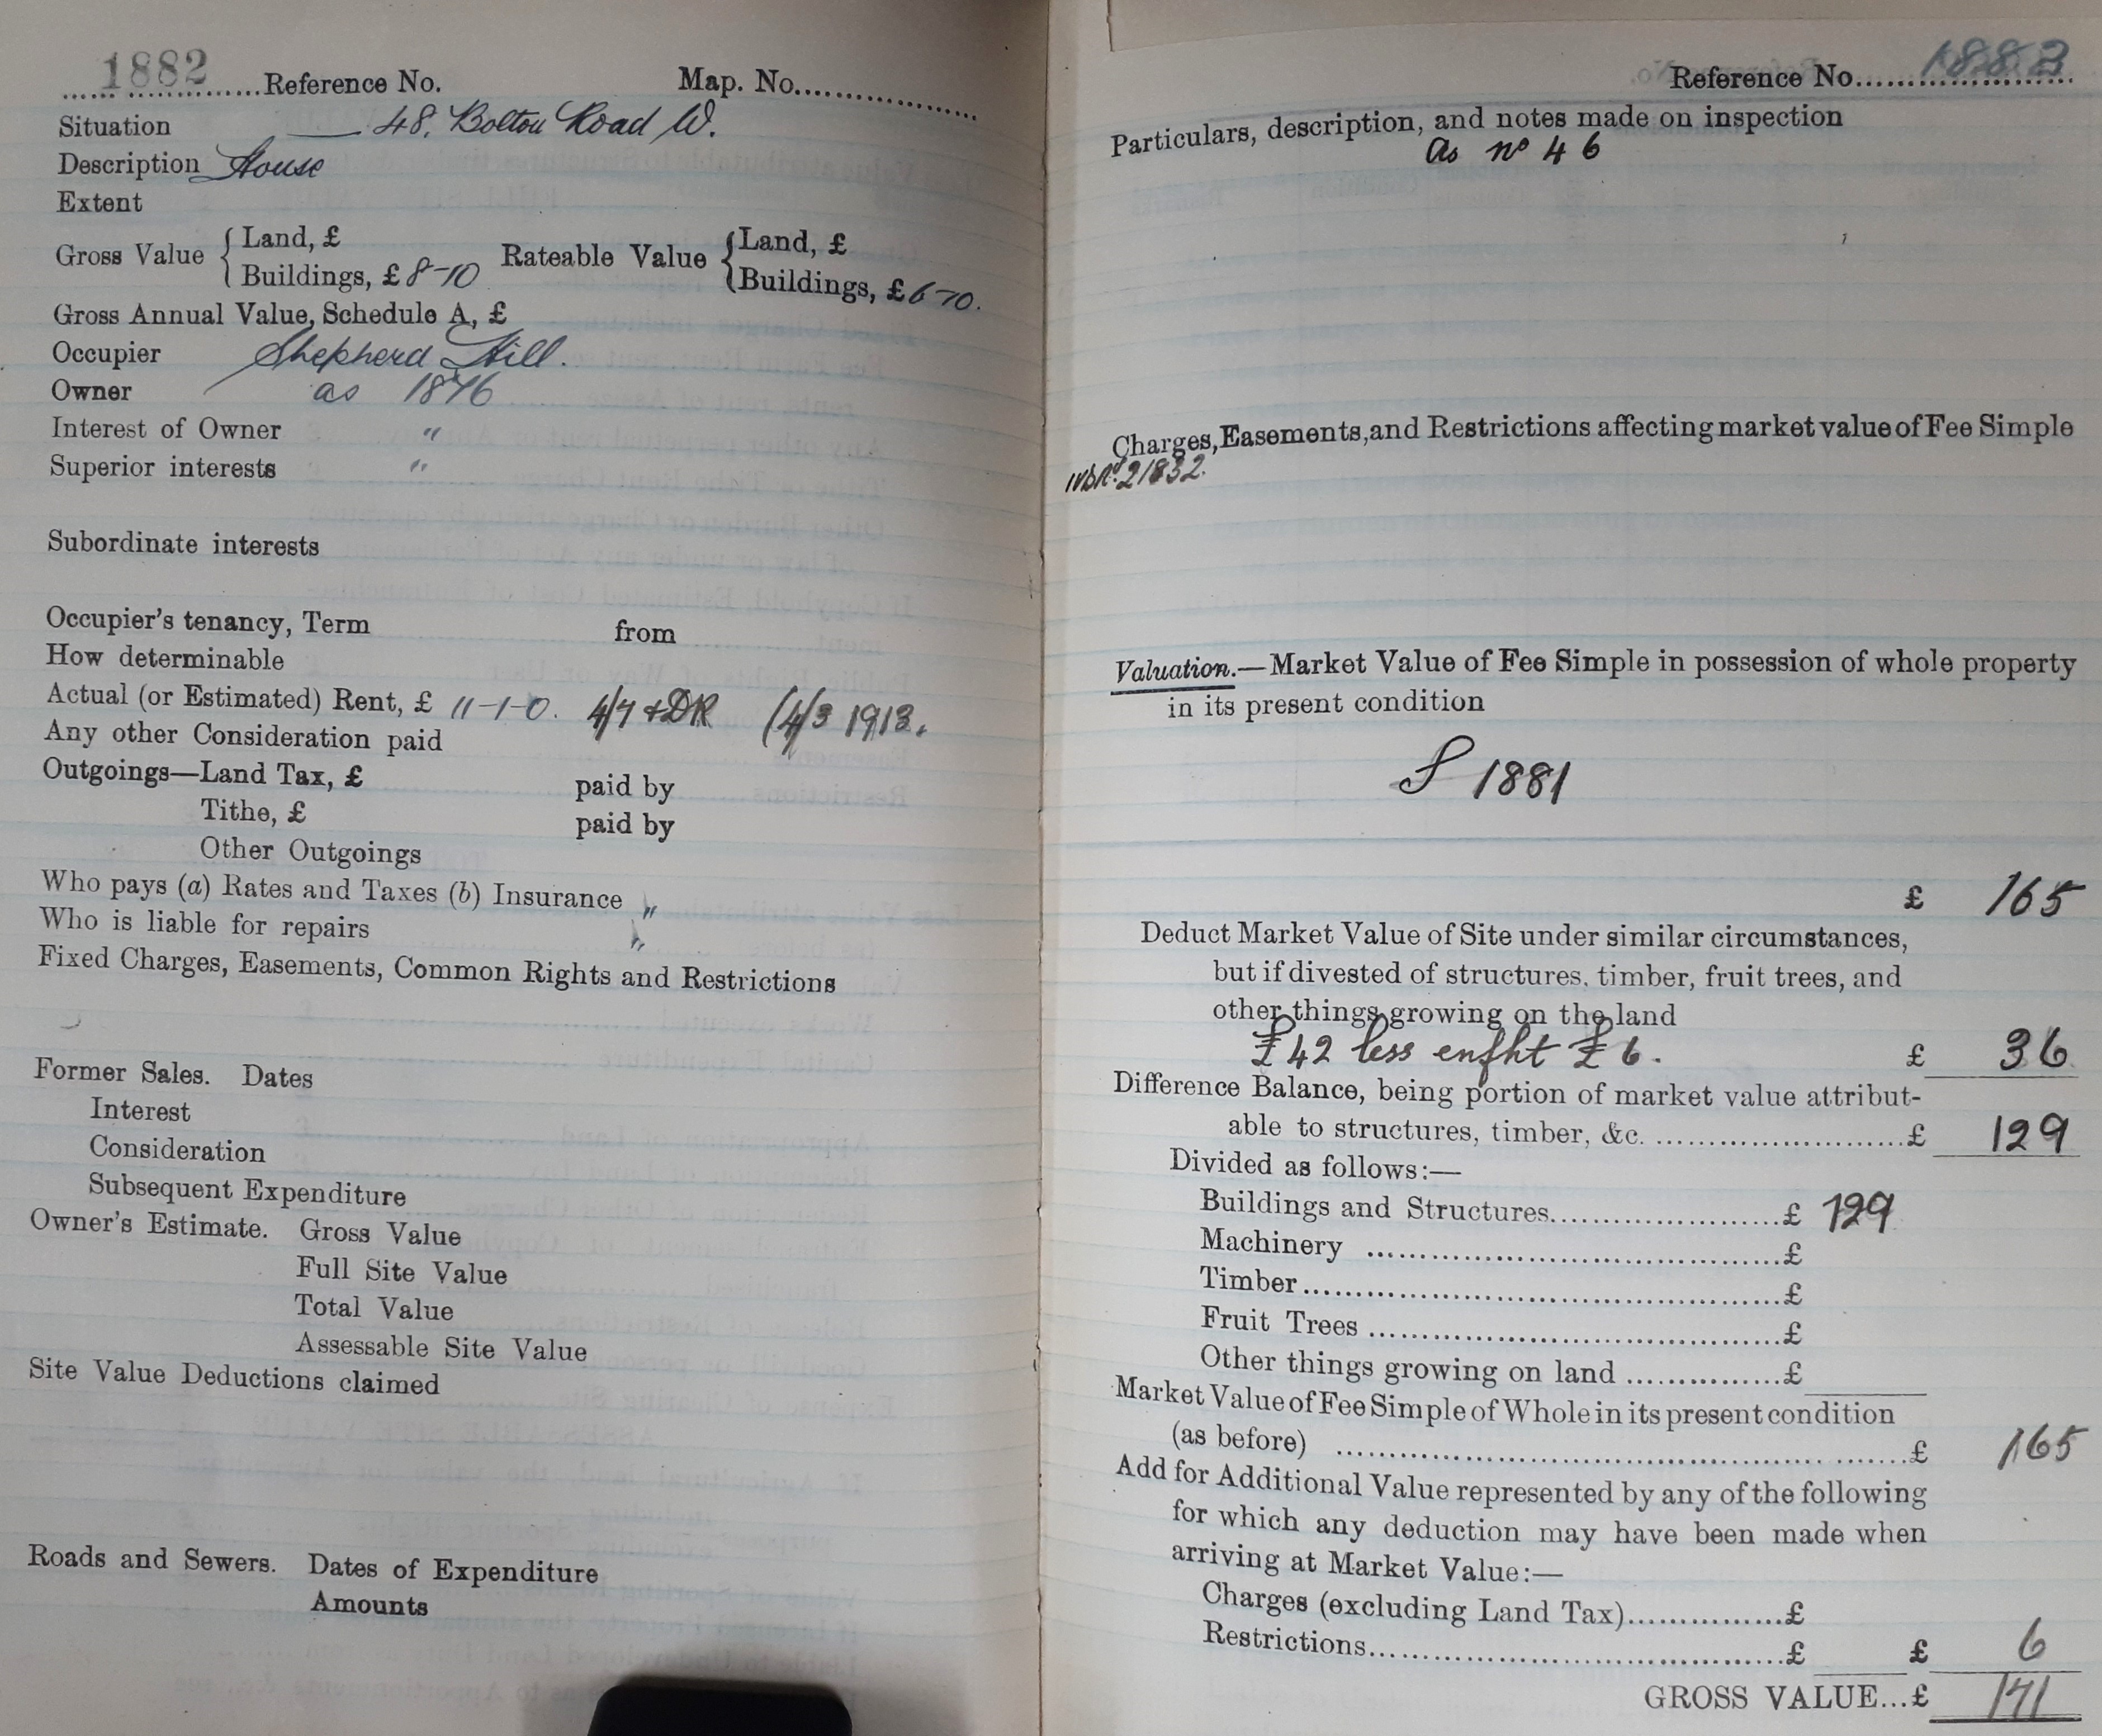 1882 Reference No. Map. No.
Situation 48, Bolton Road W.
Description House
Extent
Gross Value { Land, £
Buildings, £ 8-10
Rateable Value { Land, £
Buildings, £ 6-10.
Gross Annual Value, Schedule A, £
Occupier Shepherd Hill.
Owner as 1876
Interest of Owner "
Superior interests "
Subordinate interests
Occupier's tenancy, Term from
How determinable
Actual (or Estimated) Rent, £ 11-1-0. 4/7 + DR (4/3 1913.
Any other Consideration paid
Outgoings—Land Tax, £ paid by
Tithe, £ paid by
Other Outgoings
Who pays (a) Rates and Taxes (b) Insurance "
Who is liable for repairs "
Fixed Charges, Easements, Common Rights and Restrictions
Former Sales. Dates
Interest
Consideration
Subsequent Expenditure
Owner's Estimate. Gross Value
Full Site Value
Total Value
Assessable Site Value
Site Value Deductions claimed
Roads and Sewers. Dates of Expenditure
Amounts
Reference No. 1882
Particulars, description, and notes made on inspection
As no 46
Charges, Easements, and Restrictions affecting market value of Fee Simple
21832.
Valuation.—Market Value of Fee Simple in possession of whole property
in its present condition
1881
£ 165
Deduct Market Value of Site under similar circumstances,
but if divested of structures, timber, fruit trees, and
other things growing on the land
£42 less enfht £6. £ 36
Difference Balance, being portion of market value attribut-
able to structures, timber, &c. £ 129
Divided as follows:—
Buildings and Structures £ 129
Machinery £
Timber £
Fruit Trees £
Other things growing on land £
Market Value of Fee Simple of Whole in its present condition
(as before) £ 165
Add for Additional Value represented by any of the following
for which any deduction may have been made when
arriving at Market Value:—
Charges (excluding Land Tax) £
Restrictions £ £ 6
GROSS VALUE...£ 171